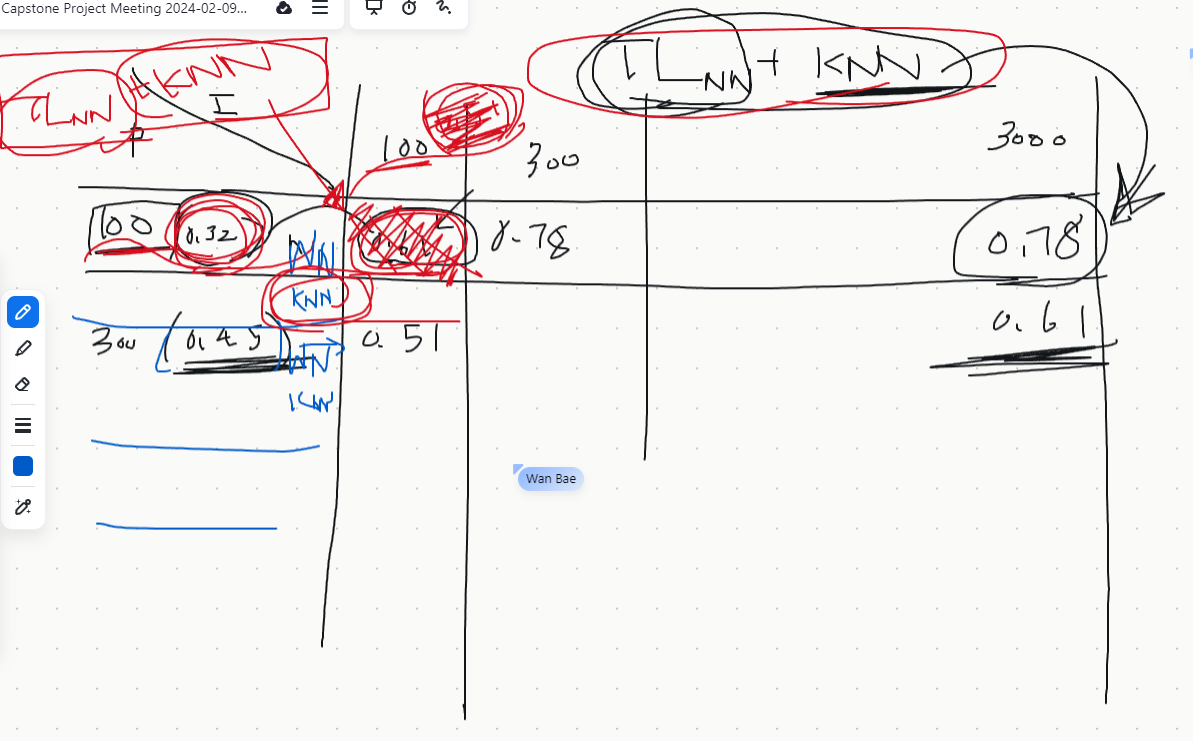 Capstone Project Meeting 2024-02-09...
TLNN + KNN
I
TLNN + KNN
100
300
3000
100
0.32
NN
0.78
0.78
KNN
300
(0.45)
NN
0.51
0.61
KNN
Wan Bae